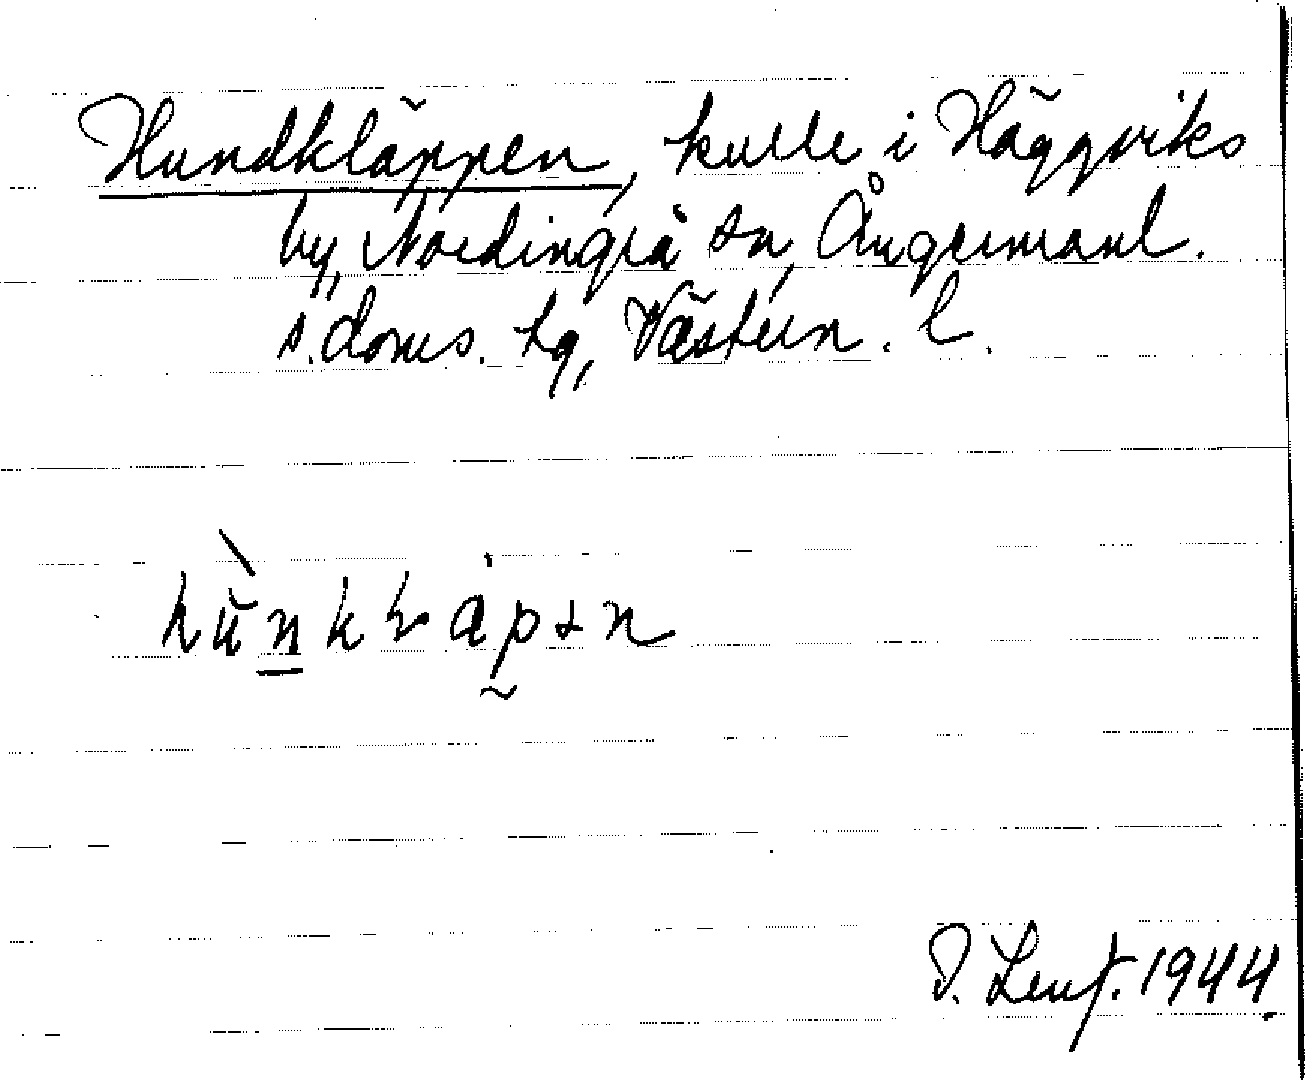 Hundkläppen, kulle i Häggviks
by, Nordingrå sn, Ångermanl.
s. doms. tg, Västern. l.
D. Lenf. 1944.